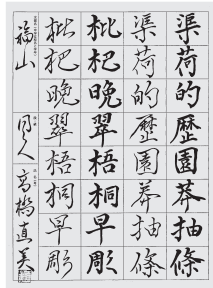 渠荷的歴園莽抽條
渠荷的歴園莽抽條
枇杷晩翠梧桐早彫
枇杷晩翠梧桐早彫
福山 同人 高橋直美